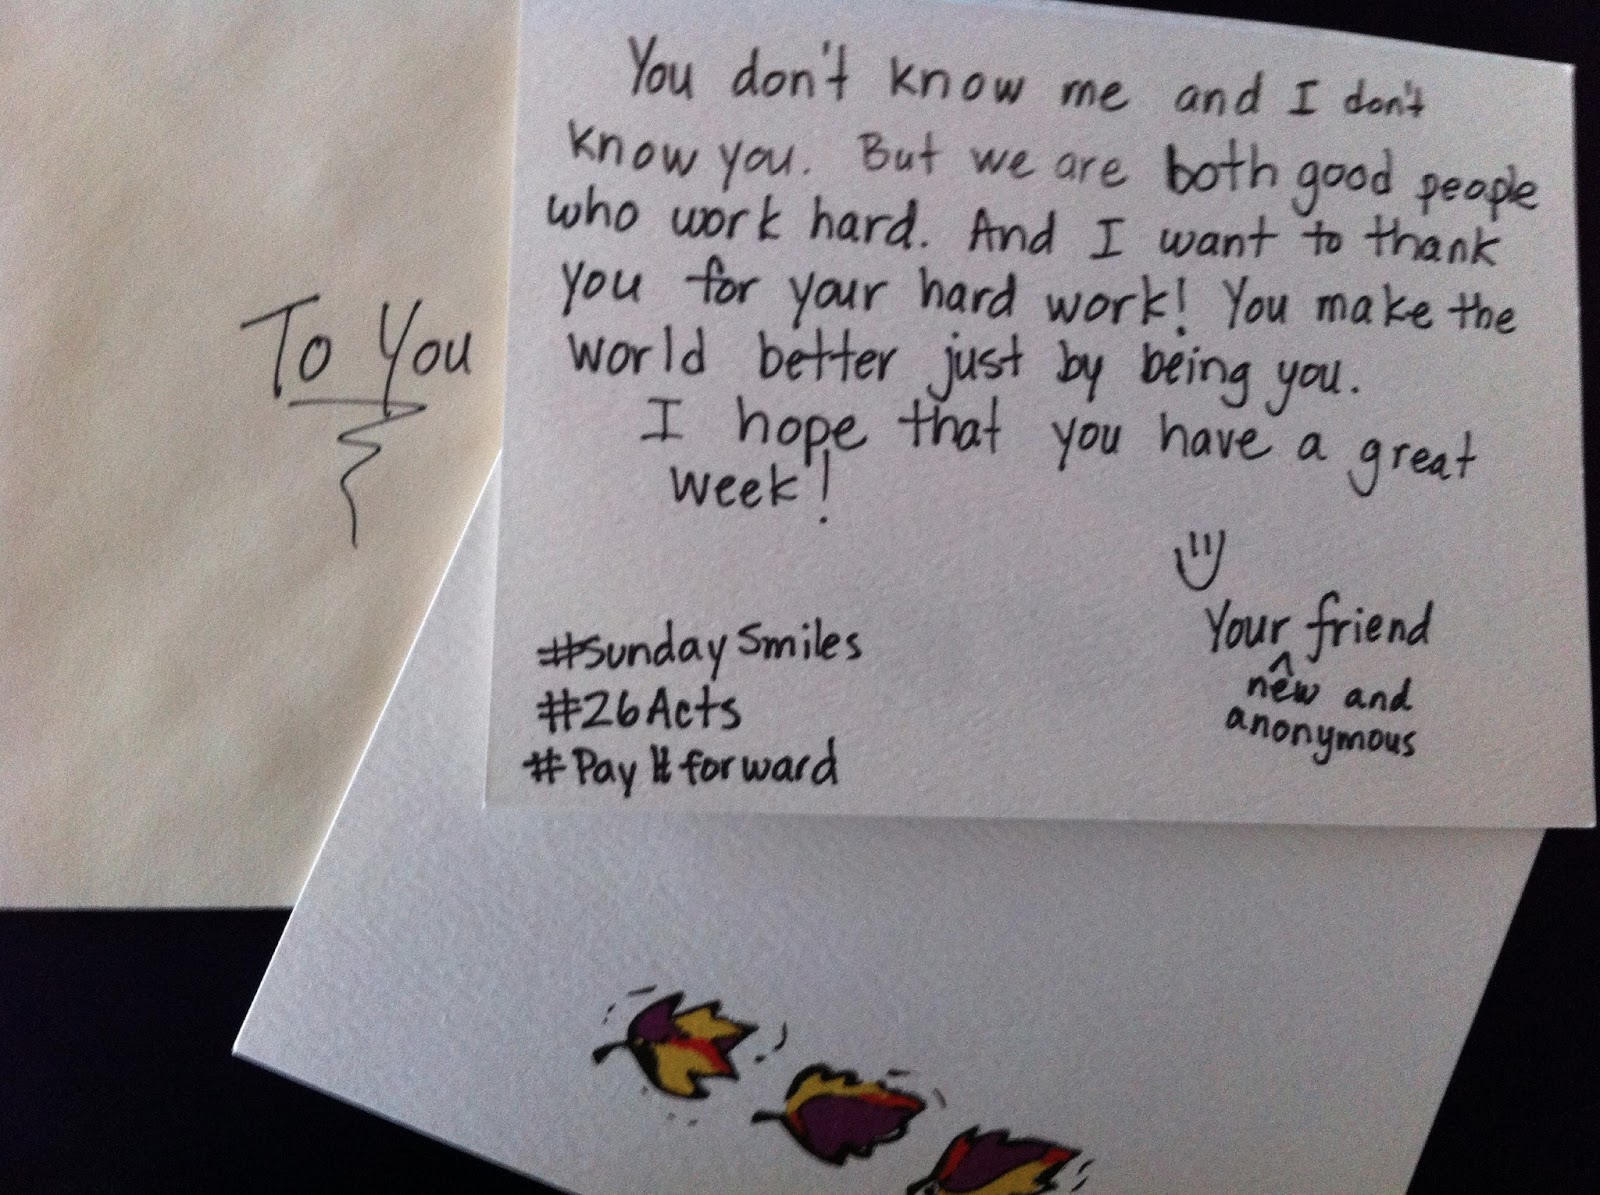 To You
You don't know me and I don't
know you. But we are both good people
who work hard. And I want to thank
you for your hard work! You make the
world better just by being you.
I hope that you have a great
week!
Your friend
^
new and
anonymous
#Sunday Smiles
#26 Acts
#Pay It forward